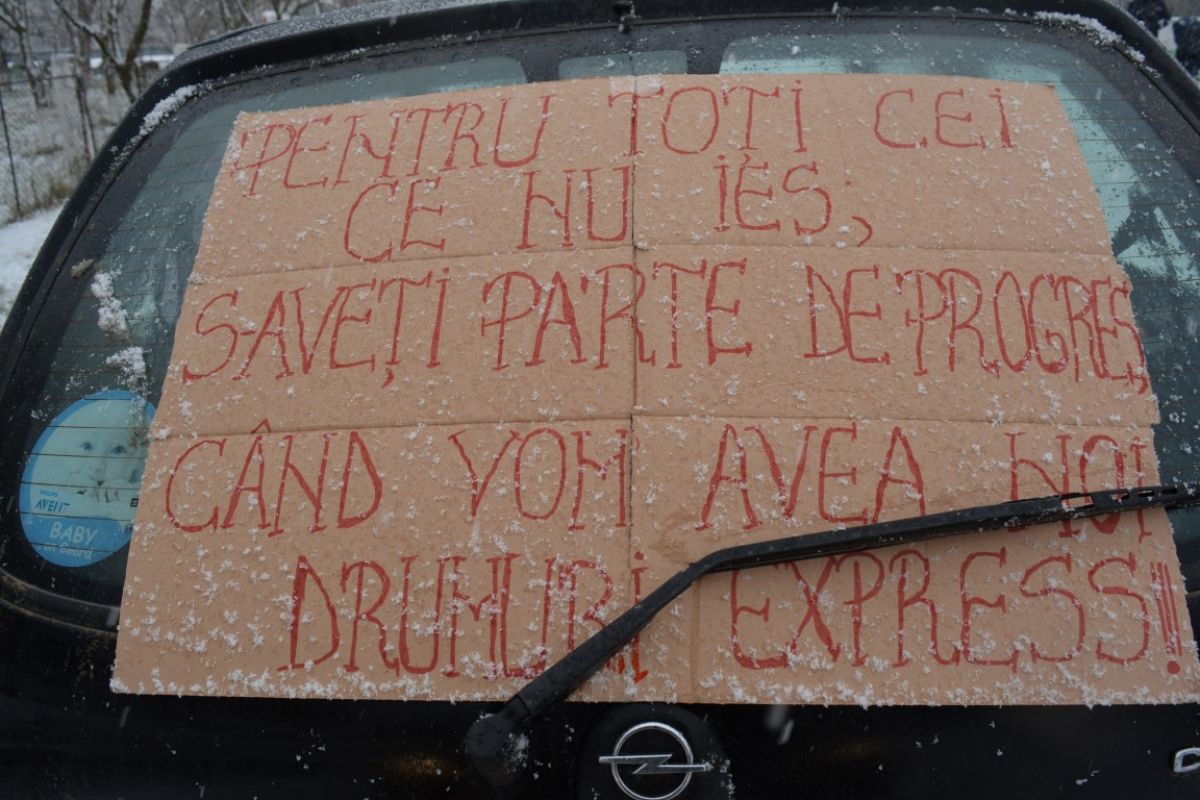 PENTRU TOȚI CEI
CE NU IES,
S-AVEȚI PARTE DE PROGRES,
CÂND VOM AVEA NOI
DRUMURI EXPRESS!!!
PHILIPS
AVENT
BABY
on Board